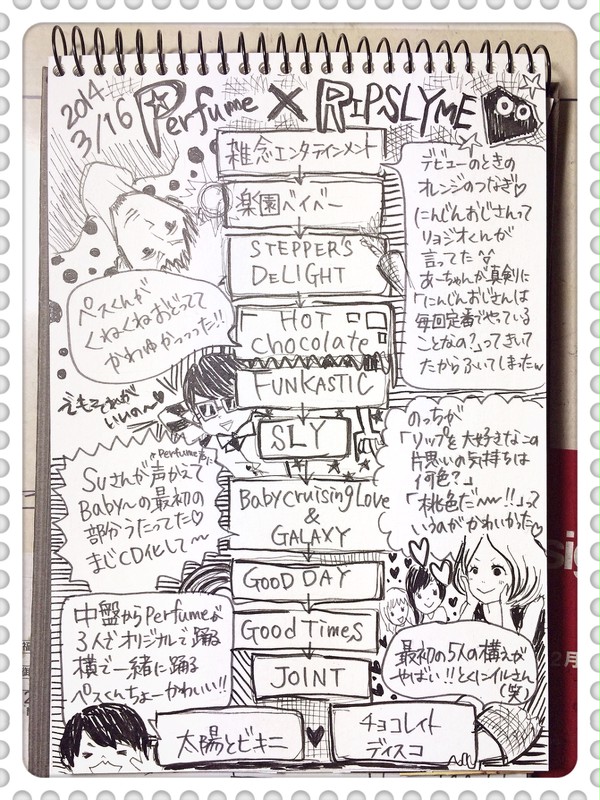 2014
3/16
Perfume × RIPSLYME
雑念エンタテインメント
楽園ベイベー
STEPPER'S
DELIGHT
HOT
chocolate
FUNKASTIC
SLY
Babycruising Love
&
GALAXY
GOOD DAY
Good Times
JOINT
太陽とビキニ
チョコレイト
ディスコ
デビューのときの
オレンジのつなぎ♡
にんじんおじさんって
リョジオくんが
言ってた
あーちゃんが真剣に
「にんじんおじさんは
毎回定番でやっている
ことなの?」ってきいて
たからふいてしまったw
ペスくんが
くねくねおどってて
かわゆかっつった!!
それが
いいの〜♡
Suさんが声かえて
Perfume声に
Baby〜の最初の
部分うたってた♡
まじCD化して〜
のっちが
「リップを大好きなこの
片思いの気持ちは
何色?」
「桃色だ〜!!」って
いうのがかわいかった♡
中盤からPerfumeが
3人でオリジナルで踊る
横で一緒に踊る
ペスくんちょーかわいい!!
最初の5人の構えが
やばい!!とくにイルさん
(笑)
2月